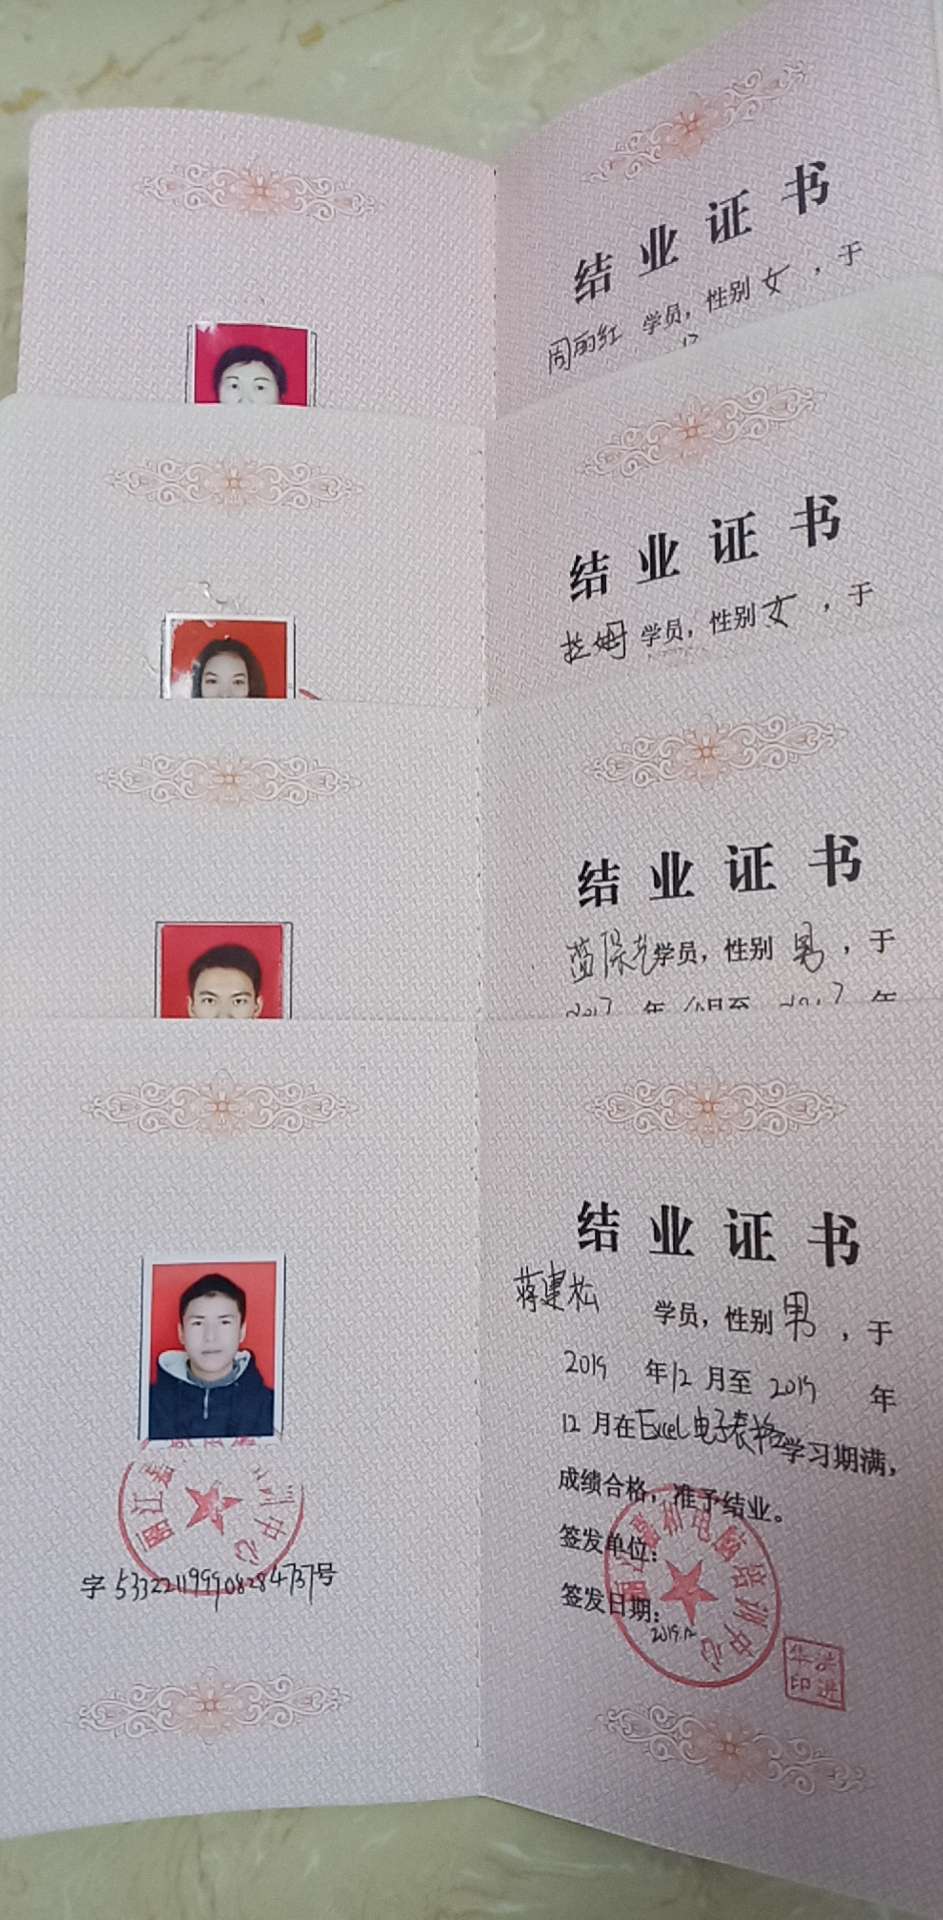 结业证书
周丽红 学员，性别 女 ，于
12
结业证书
拉姆 学员，性别 女 ，于
结业证书
学员，性别 男 ，于
2017 年 月至 2017 年
结业证书
蒋建松 学员，性别 男 ，于
2019 年12 月至 2019 年
12 月在Excel电子表格学习期满，
成绩合格，准予结业。
签发单位：
签发日期：
2019.12
丽江 和电脑培训中心
洪进华印
丽江 训中心
字 533221199908284737号